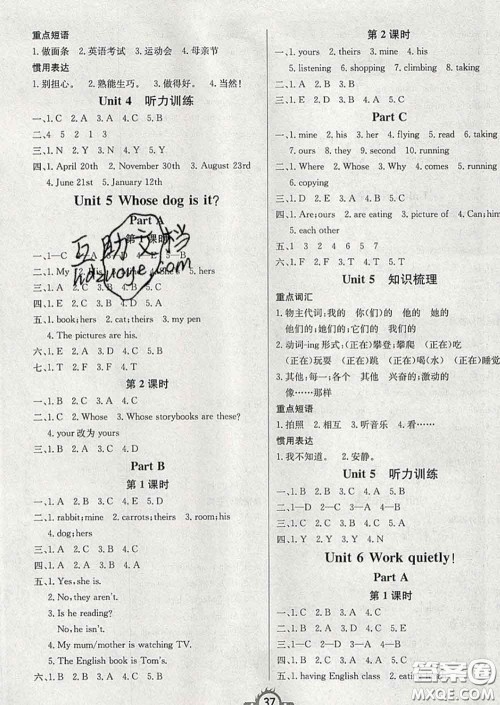 重点短语
1.做面条 2.英语考试 3.运动会 4.母亲节
惯用表达
1.别担心。 2.熟能生巧。 3.做得好。 4.当然!
Unit 4 听力训练
一、1.C 2.A 3.A 4.C 5.B
二、4 5 2 1 3
三、1.N 2.Y 3.N 4.Y 5.Y
四、1. April 20th 2. November 30th 3. August 23rd
4. June 21st 5. January 12th
Unit 5 Whose dog is it?
Part A
第 1 课时
一、1—B 2—D 3—A 4—C
二、1. My
五、1. book; hers 2. cat; theirs 3. my pen
4. The pictures are his.
六、1.B 2.A 3.D 4.E 5.C
七、1.T 2.F 3.F 4.T
第 2 课时
一、1.D 2.C 3.A 4.B
二、1. C 2. Whose 3. Whose storybooks are these?
4. your 改为 yours
Part B
第 1 课时
一、1.C 2.B 3.B 4.C
二、1. rabbit; mine 2. carrots; theirs 3. room; his
4. dog; hers
三、1.A 2.C 3.A 4.D 5.C
四、1.B 2.C 3.A 4.D
五、1. Yes, she is.
2. No, they aren't.
3. Is he reading?
No, he isn't.
4. My mum/mother is watching TV.
5. The English book is Tom's.
六、1.D 2.A 3.B 4.E 5.C
第 2 课时
一、1. yours 2. theirs 3. mine 4. his
5. listening 6. shopping 7. climbing 8. drinking
二、1.B 2.A 3.B 4.B
三、1.B 2.D 3.A 4.C
Part C
一、1. mine 2. her 3. flying 4. read 5. reading
6. ours
二、1. Where 2. Whose 3. Why 4. comes 5. running
6. copying
三、1. Are; yours 2. are eating 3. picture of 4. Can; use
5. each other
五、1 3 2 4 6 5 7
六、T F T F T
Unit 5 知识梳理
重点词汇
1.物主代词:我的 你(们)的 他的 她的
他们的;她们的;它们的 我们的
2.动词-ing 形式:(正在)攀登;攀爬 (正在)吃
(正在)玩耍 (正在)跳 (正在)喝(水) (正在)睡觉
3.其他:每一;各个 其他 兴奋的;激动的
像……那样
重点短语
1.拍照 2.相互 3.听音乐 4.看……
惯用表达
1.我不知道。 2.安静。
Unit 5 听力训练
一、1.B 2.B 3.A 4.B 5.B
二、1—C 2—D 3—A 4—B
三、1.C 2.A 3.C 4.B 5.C
四、1.Y 2.Y 3.N 4.N 5.N
Unit 6 Work quietly!
Part A
第 1 课时
一、1.B 2.C 3.A 4.C
二、1.B 2.A 3.B 4.A
三、1.D 2.B 3.A 4.C 5.E
四、1.A 2.B 3.A 4.B
五、1. having English class 2. eating lunch
37
互助文档
hdzuoye.com
答案圈
MXQE.COM